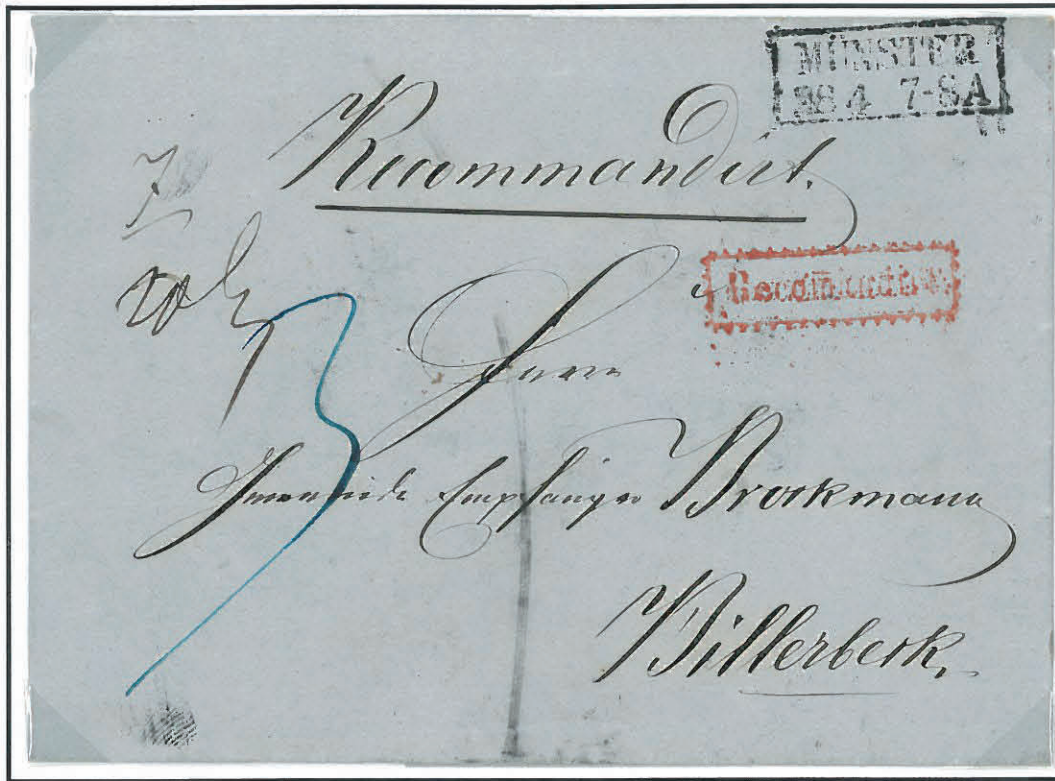 MÜNSTER
28 4 7-8A
Recommandirt.
7
Recommandirt
3
Herrn
Gemeinde Empfänger Brockmann
Billerbeck.